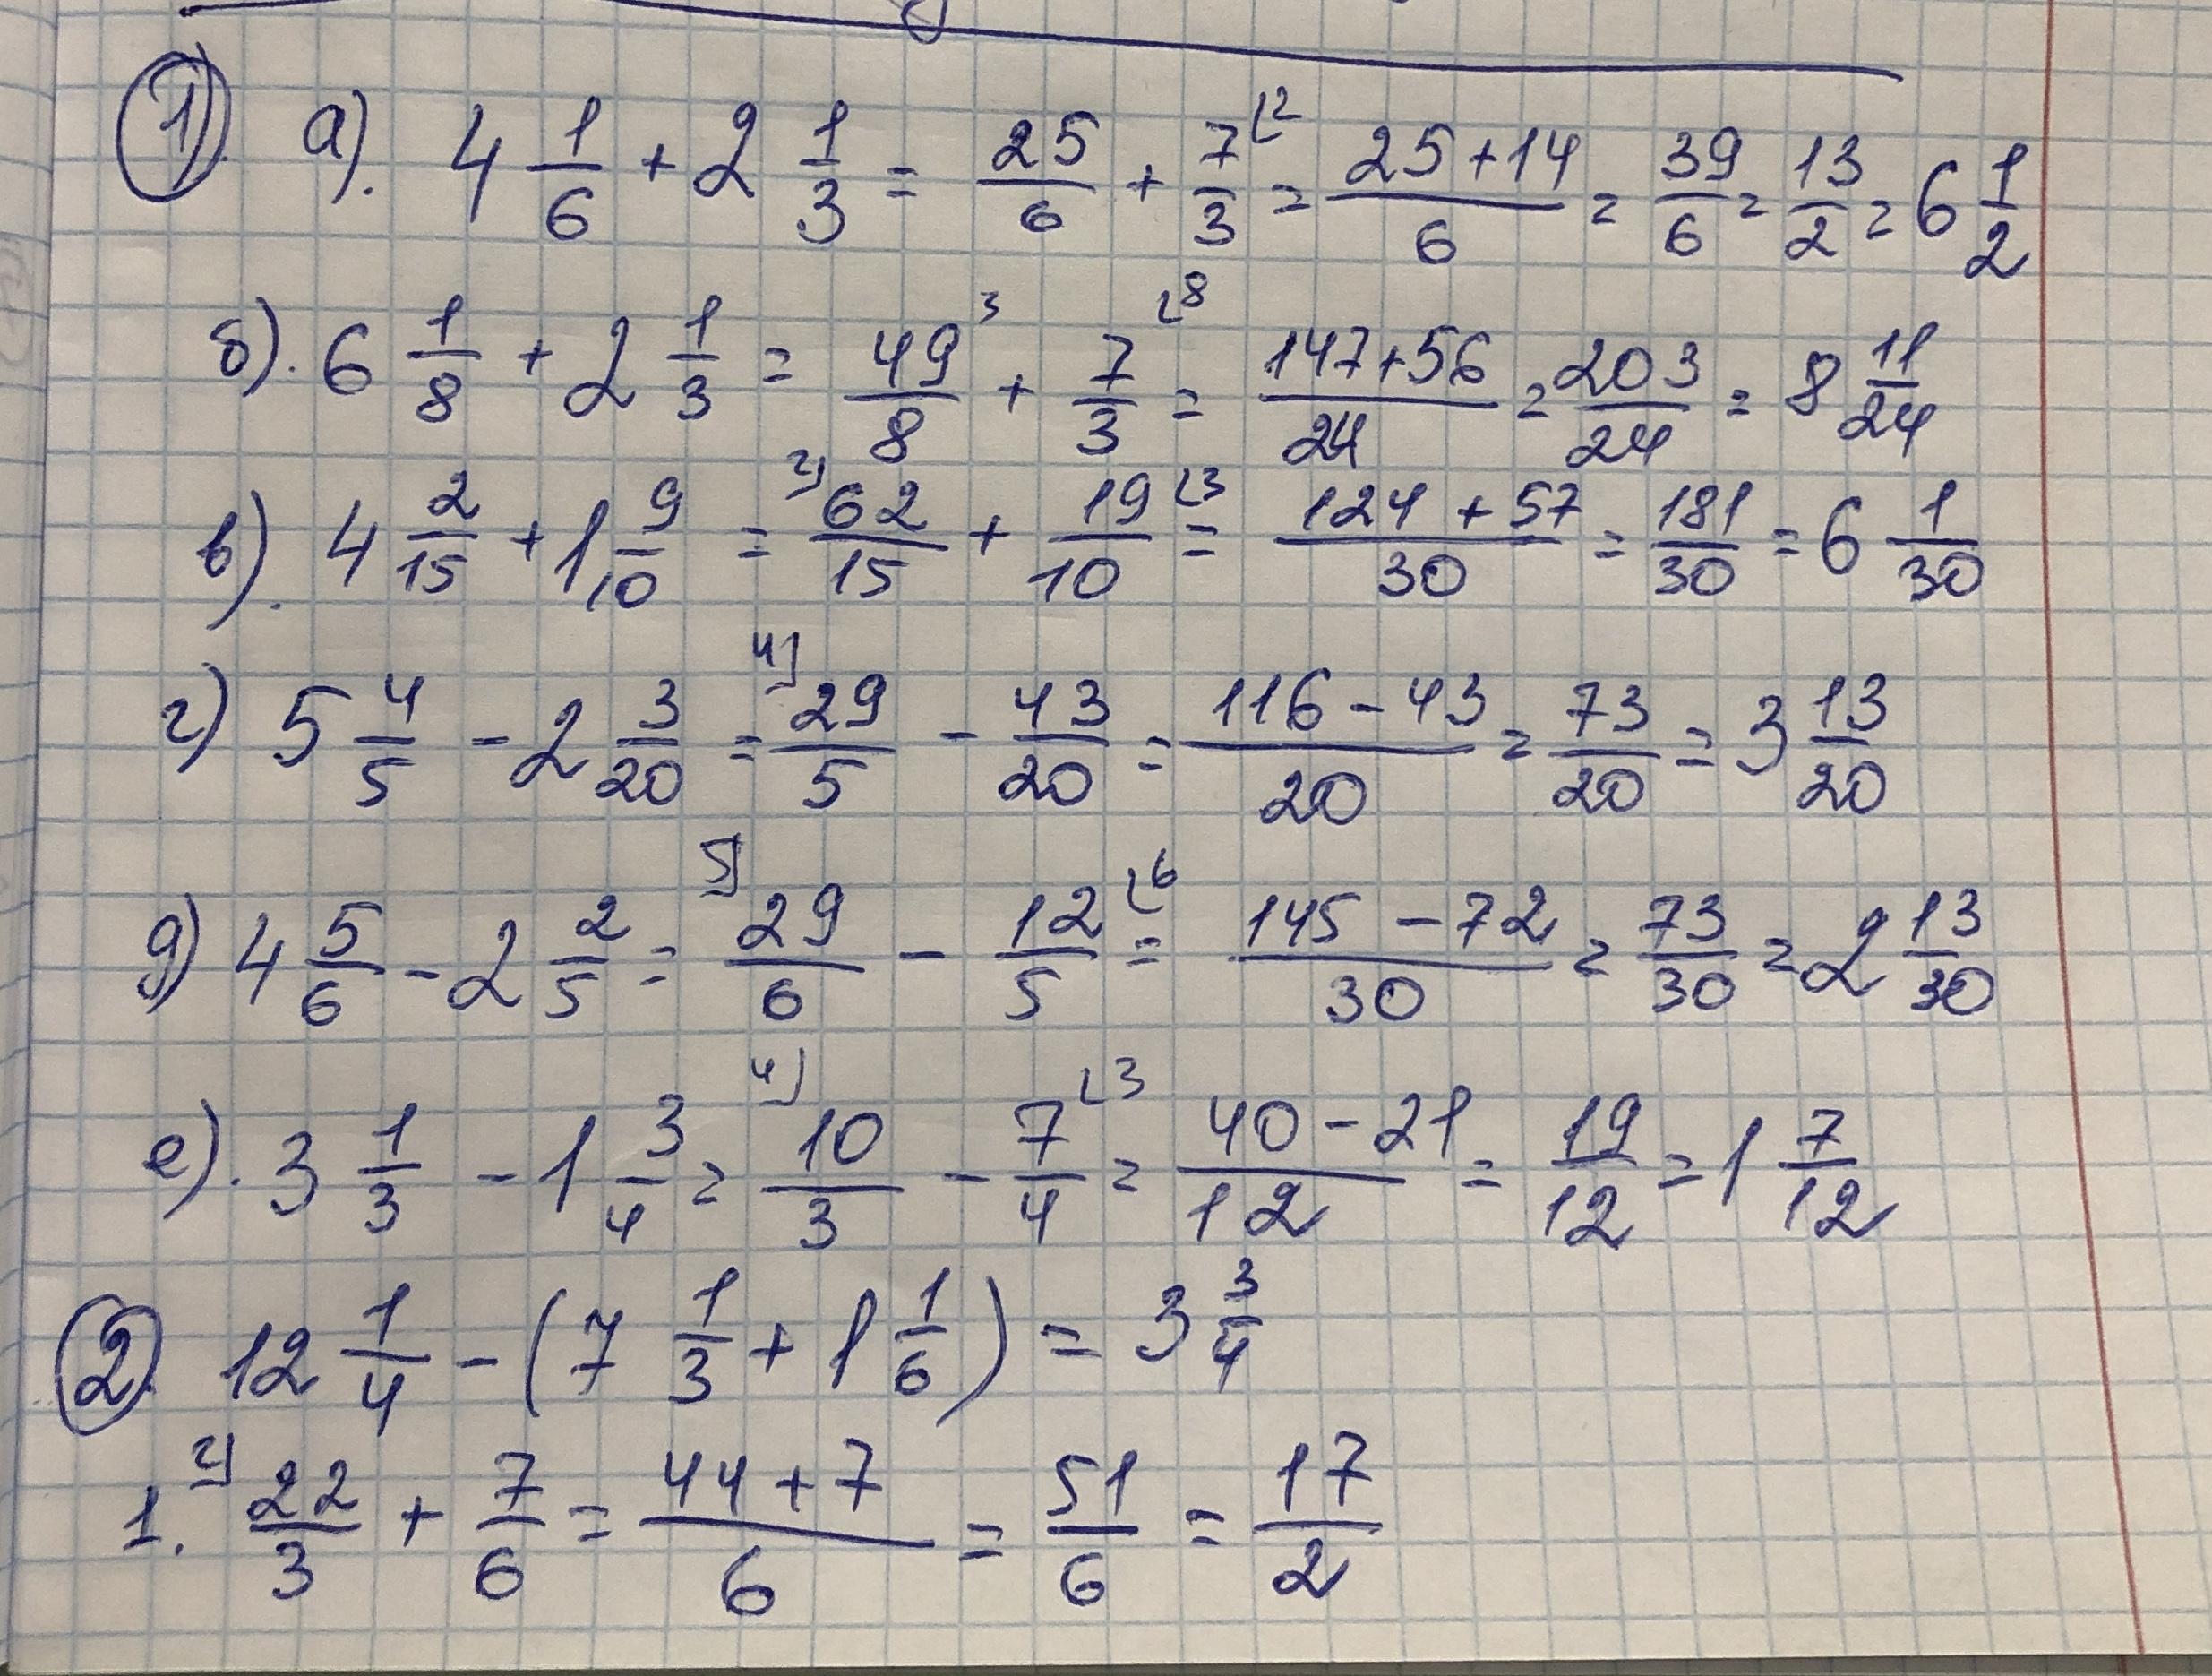 1). а). 4 1/6 + 2 1/3 = 25/6 + 7/3 ⌊2 = (25+14)/6 = 39/6 = 13/2 = 6 1/2
б). 6 1/8 + 2 1/3 = 49/8 3 + 7/3 ⌊8 = (147+56)/24 = 203/24 = 8 11/24
в). 4 2/15 + 1 9/10 = 2⌋ 62/15 + 19/10 ⌊3 = (124+57)/30 = 181/30 = 6 1/30
г) 5 4/5 - 2 3/20 = 4⌋ 29/5 - 43/20 = (116-43)/20 = 73/20 = 3 13/20
д) 4 5/6 - 2 2/5 = 5⌋ 29/6 - 12/5 ⌊6 = (145-72)/30 = 73/30 = 2 13/30
е). 3 1/3 - 1 3/4 = 4⌋ 10/3 - 7/4 ⌊3 = (40-21)/12 = 19/12 = 1 7/12
2). 12 1/4 - (7 1/3 + 1 1/6) = 3 3/4
1. 2⌋ 22/3 + 7/6 = (44+7)/6 = 51/6 = 17/2